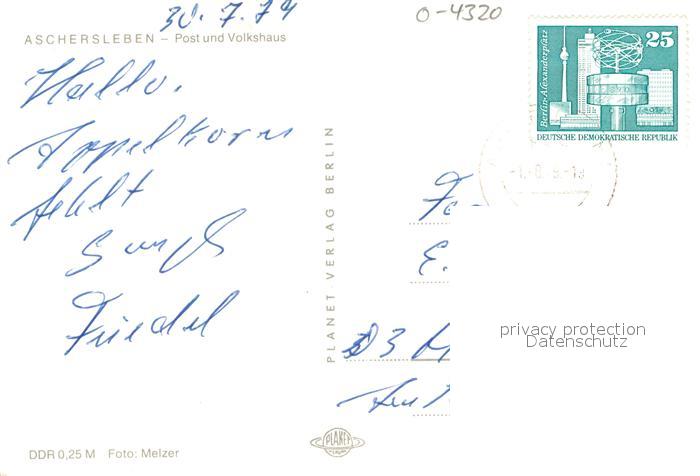 30.7.79
O-4320
ASCHERSLEBEN – Post und Volkshaus
Hallo,
Appelkorn
fehlt
Gruß
Friedel
PLANET-VERLAG BERLIN
DDR 0,25 M Foto: Melzer
PLANET
Berlin-Alexanderplatz
25
DEUTSCHE DEMOKRATISCHE REPUBLIK
E.
privacy protection
Datenschutz